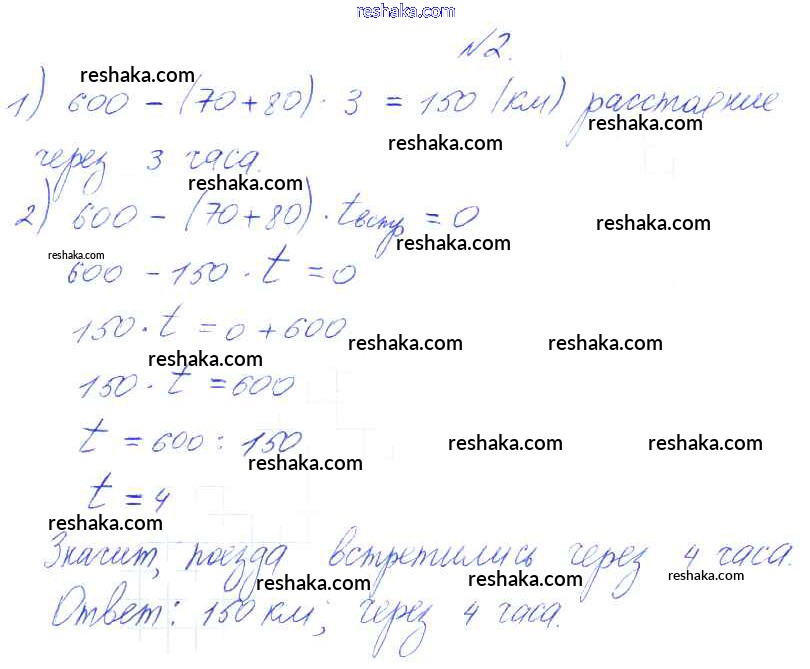 reshaka.com
№2.
reshaka.com
1) 600 - (70+80) · 3 = 150 (км) расстояние
reshaka.com reshaka.com
через 3 часа.
reshaka.com
2) 600 - (70+80) · tвстр = 0
reshaka.com reshaka.com
reshaka.com
600 - 150 · t = 0
150 · t = 0 + 600
reshaka.com reshaka.com reshaka.com
150 · t = 600
t = 600 : 150
reshaka.com reshaka.com reshaka.com
t = 4
reshaka.com
Значит, поезда встретились через 4 часа.
reshaka.com reshaka.com reshaka.com
Ответ: 150 км; через 4 часа.
reshaka.com